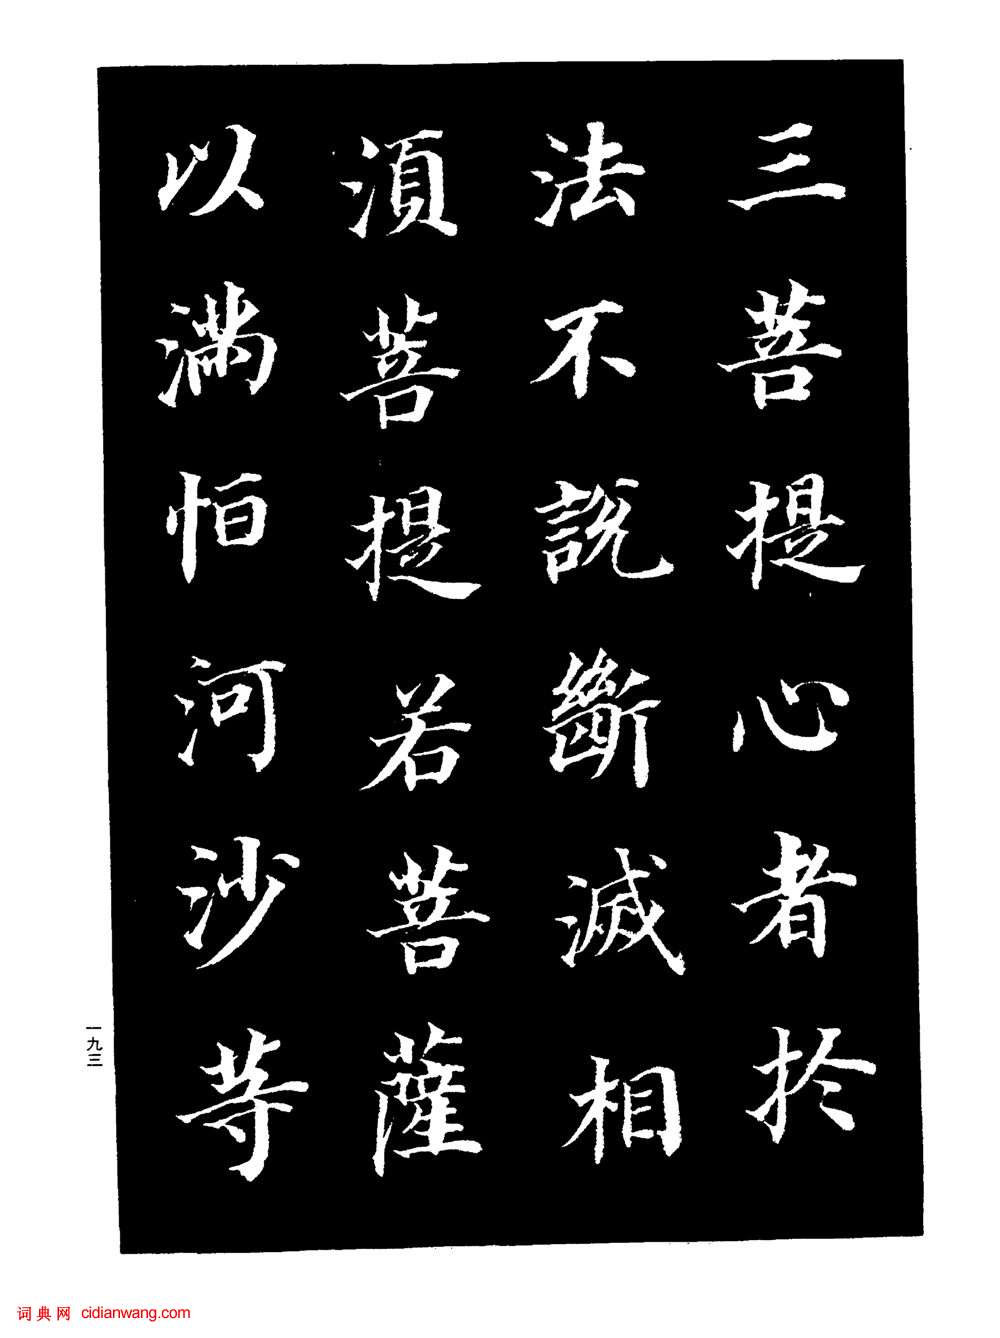 三菩提心者於
法不說斷滅相
湏菩提若菩薩
以滿怕河沙等
一九三
词典网 cidianwang.com